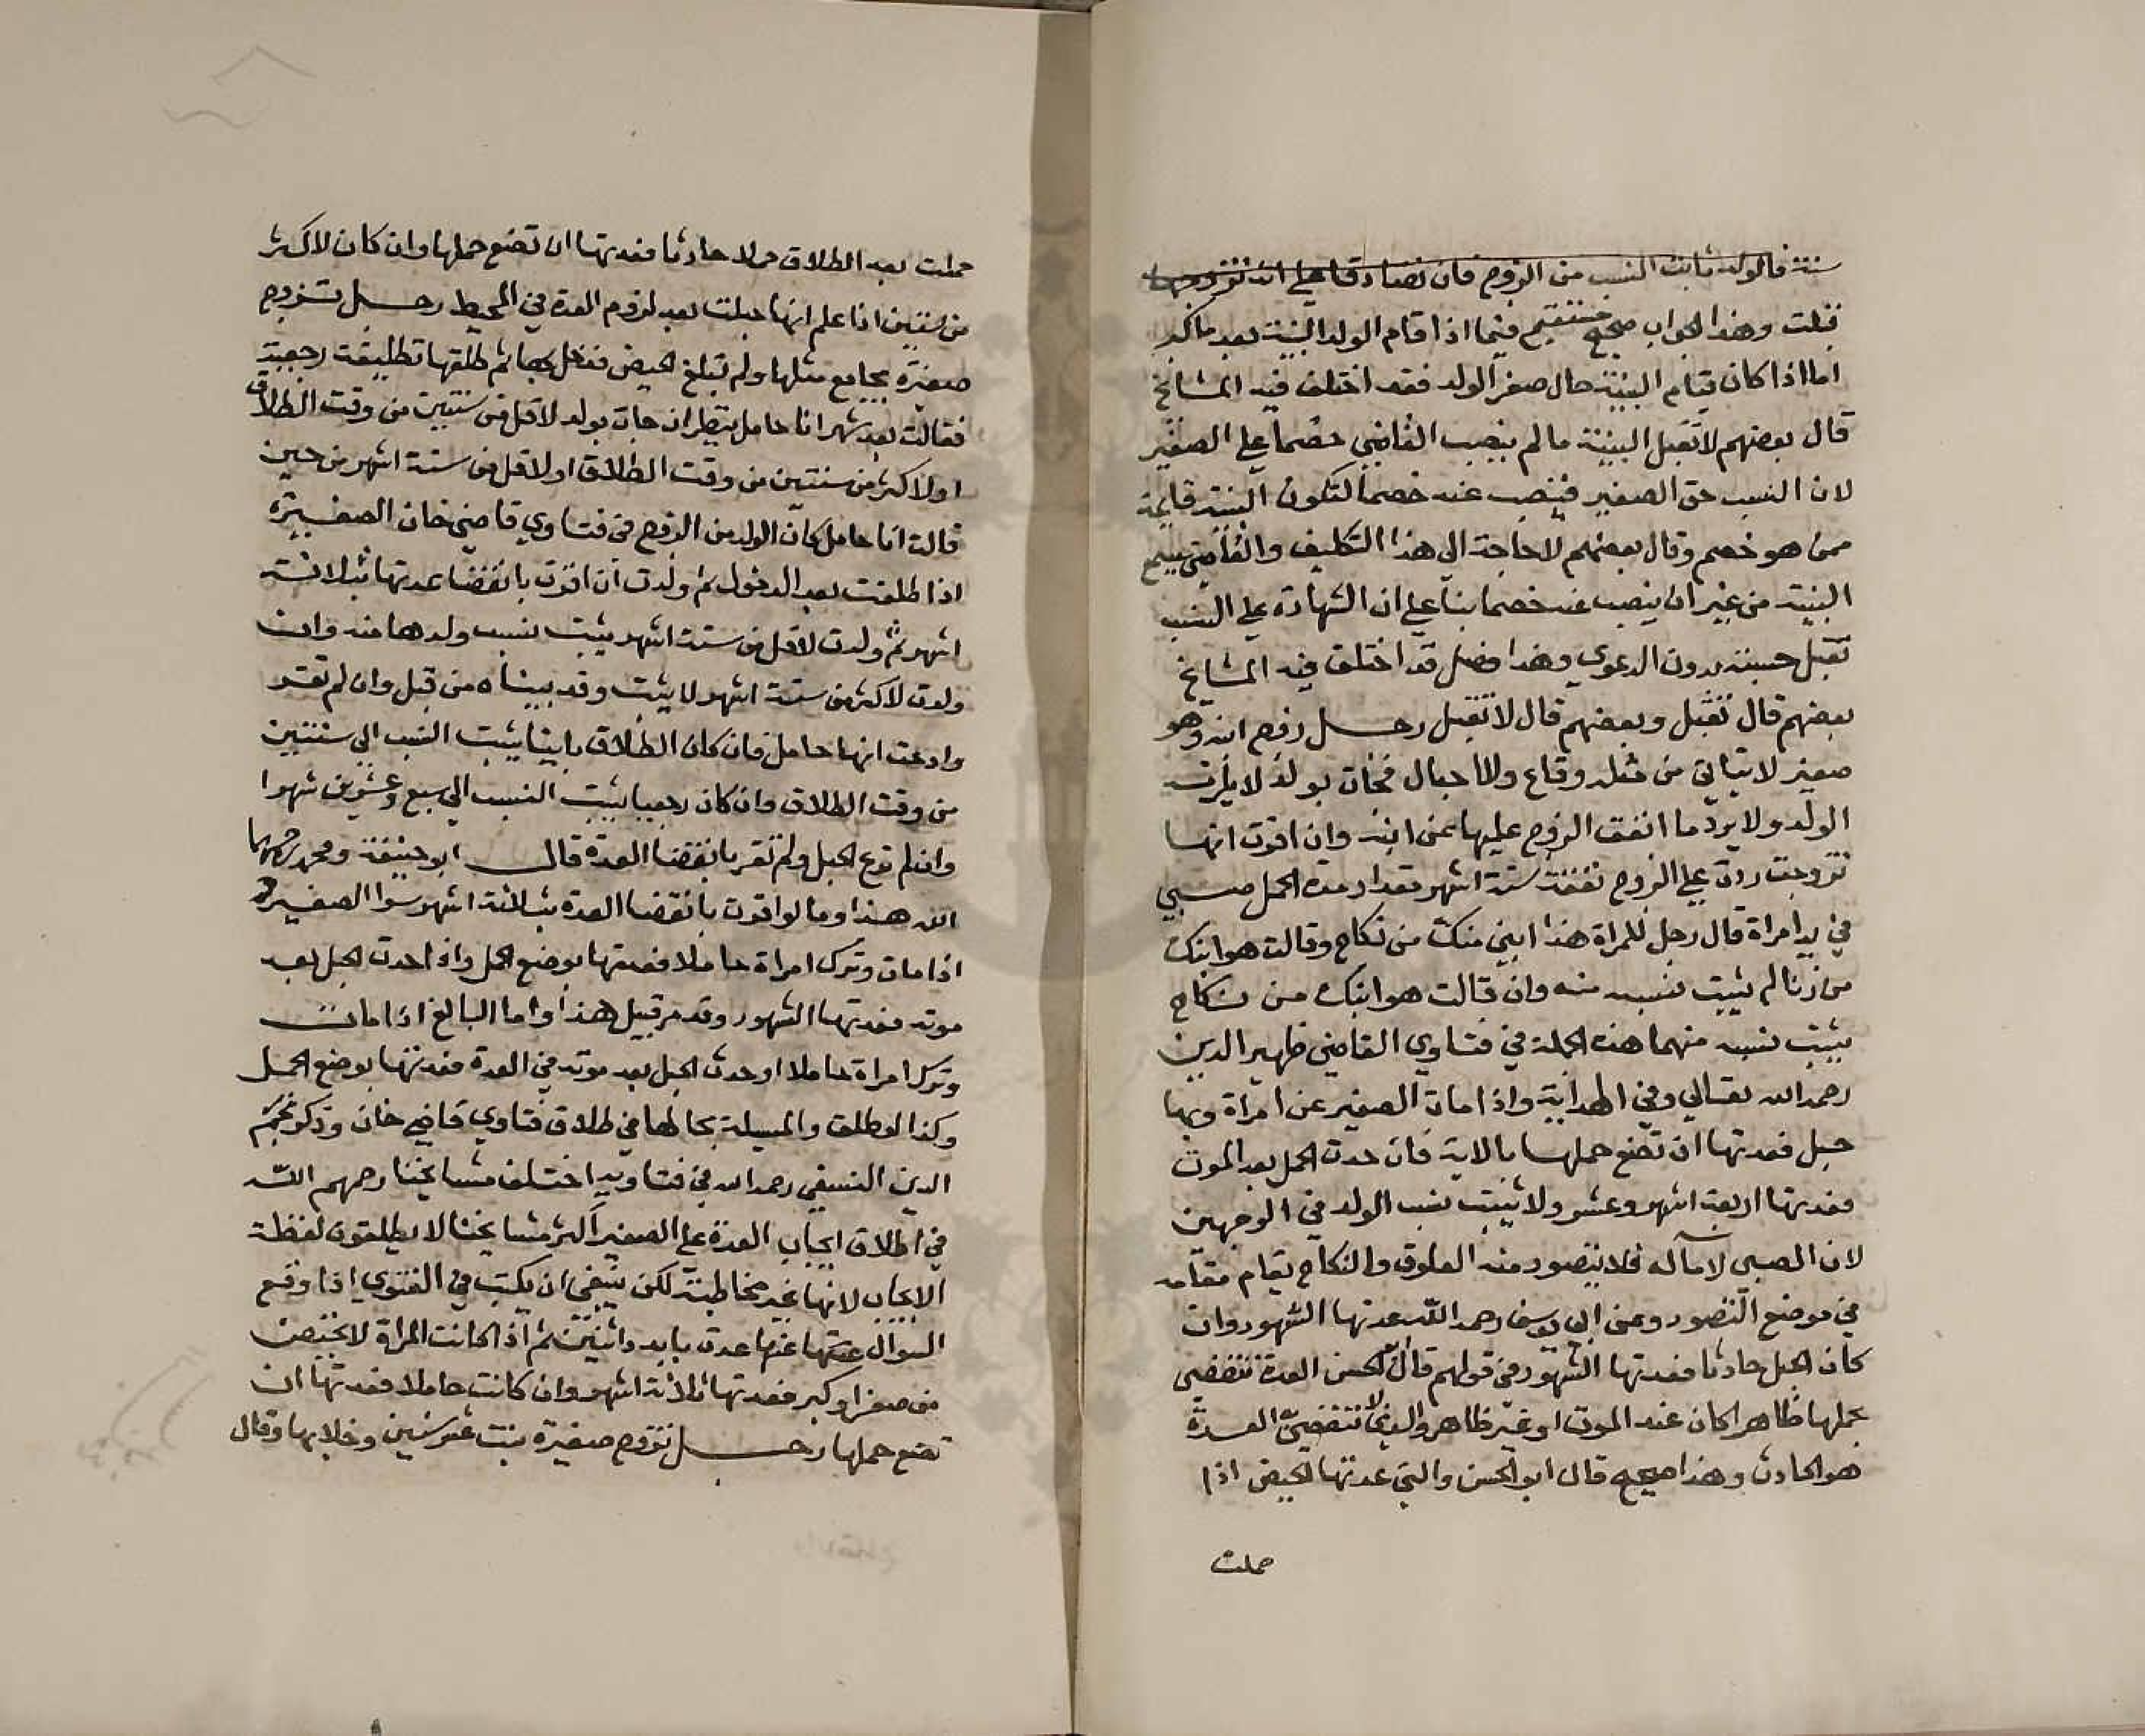 سنة فالولد ثابت النسب من الزوج فان تصادقا على انه تزوجها
قبلت وهذا الجواب صحيح مستقيم فيما اذا قام الولد البينة بعد ما كبر
اما اذا كان قيام البينة حال صغر الولد فقد اختلف فيه المشايخ
قال بعضهم لا تقبل البينة ما لم ينصب القاضي خصما على الصغير
لان النسب حق الصغير فينصب عنه خصما لتكون البينة قايمة
ممن هو خصم وقال بعضهم لا حاجة الى هذا التكليف والقاضي يسمع
البينة من غير ان ينصب عنه خصما بنا على ان الشهادة على النسب
تقبل حسبة بدون الدعوى وهذا فصل قد اختلف فيه المشايخ
بعضهم قال تقبل وبعضهم قال لا تقبل رجل زوج ابنه وهو
صغير لا يتاتى من مثله وقاع ولا احبال فجات بولد لا يلزمه
الولد ولا يرد ما انفق الزوج عليها عن ابنه وان اقرت انها
تزوجت ردت على الزوج نفقة ستة اشهر مقدار مدة الحمل صبي
في يد امراة قال رجل للمراة هذا ابني منك من نكاح وقالت هو ابنك
من زنا لم يثبت نسبه منه وان قالت هو ابنك من نكاح
يثبت نسبه منهما هذه الجملة في فتاوي القاضي ظهير الدين
رحمه الله تعالى وفي الهداية واذا مات الصغير عن امراة وبها
حبل فعدتها ان تضع حملها بالاية فان حدث الحمل بعد الموت
فعدتها اربعة اشهر وعشر ولا يثبت نسب الولد في الوجهين
لان الصبي لا ماله فلا يتصور منه العلوق والنكاح يقام مقامه
في موضع التصور وعن ابي يوسف رحمه الله عدتها الشهور وان
كان الحبل حادثا فعدتها الشهور في قولهم قال الحسن العدة تنقضي
بحملها ظاهرا كان عند الموت او غير ظاهر والذي لا تنقضي العدة
هو الحادث وهذا صحيح قال ابو الحسن والتي عدتها الحيض اذا
حملت
حملت بعد الطلاق حملا حادثا فعدتها ان تضع حملها وان كان لاكثر
من سنتين اذا علم انها حبلت بعد لزوم العدة في المحيط رجل تزوج
صغيرة يجامع مثلها ولم تبلغ الحيض فدخل بها ثم طلقها تطليقة رجعية
فقالت بعد شهر انا حامل ينظر ان جات بولد لاقل من سنتين من وقت الطلاق
او لاكثر من سنتين من وقت الطلاق او لاقل من ستة اشهر من حين
قالت انا حامل كان الولد من الزوج في فتاوي قاضي خان الصغيرة
اذا طلقت بعد الدخول ثم ولدت ان اقرت بانقضا عدتها بثلاثة
اشهر ثم ولدت لاقل من ستة اشهر يثبت نسب ولدها منه وان
ولدت لاكثر من ستة اشهر لا يثبت وقد بيناه من قبل وان لم تقر
وادعت انها حامل فان كان الطلاق باينا يثبت النسب الى سنتين
من وقت الطلاق وان كان رجعيا يثبت النسب الى سبع وعشرين شهرا
وان لم تدع الحبل ولم تقر بانقضا العدة قال ابو حنيفة ومحمد رحمهما
الله هذا وما لو اقرت بانقضا العدة بثلاثة اشهر سوا الصغير
اذا مات وترك امراة حاملا فعدتها بوضع الحمل واذا حدث الحبل بعد
موته فعدتها الشهور وقد مر قبيل هذا واما البالغ اذا مات
وترك امراة حاملا او حدث الحبل بعد موته في العدة فعدتها بوضع الحمل
وكذا المطلقة والمسيلة بحالها في طلاق فتاوي قاضي خان وذكر نجم
الدين النسفي رحمه الله في فتاويه اختلف مشايخنا رحمهم الله
في اطلاق ايجاب العدة على الصغير اكثر مشايخنا لا يطلقون لفظة
الايجاب لانها غير مخاطبة لكن ينبغي ان يكتب في الفتوي اذا وقع
السوال عنها عدت بايد واثنين ثم اذا كانت المراة لا تحيض
من صغر او كبر فعدتها ثلاثة اشهر وان كانت حاملا فعدتها ان
تضع حملها رجل تزوج صغيرة بنت عشر سنين وخلا بها وقال